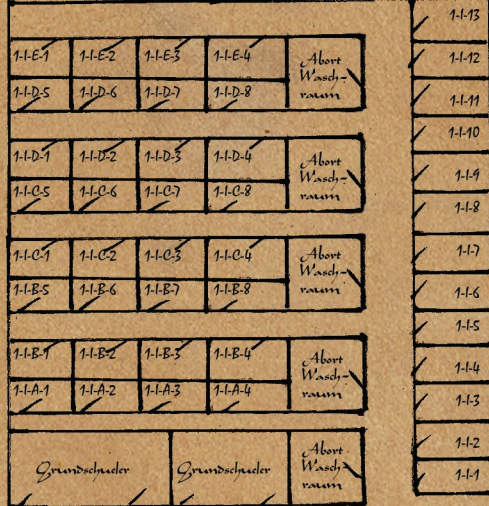 1-I-E-1 1-I-E-2 1-I-E-3 1-I-E-4 Abort
Wasch-
1-I-D-5 1-I-D-6 1-I-D-7 1-I-D-8 raum
1-I-D-1 1-I-D-2 1-I-D-3 1-I-D-4 Abort
Wasch-
1-I-C-5 1-I-C-6 1-I-C-7 1-I-C-8 raum
1-I-C-1 1-I-C-2 1-I-C-3 1-I-C-4 Abort
Wasch-
1-I-B-5 1-I-B-6 1-I-B-7 1-I-B-8 raum
1-I-B-1 1-I-B-2 1-I-B-3 1-I-B-4 Abort
Wasch-
1-I-A-1 1-I-A-2 1-I-A-3 1-I-A-4 raum
Grundschueler Grundschueler Abort
Wasch-
raum
1-I-13
1-I-12
1-I-11
1-I-10
1-I-9
1-I-8
1-I-7
1-I-6
1-I-5
1-I-4
1-I-3
1-I-2
1-I-1